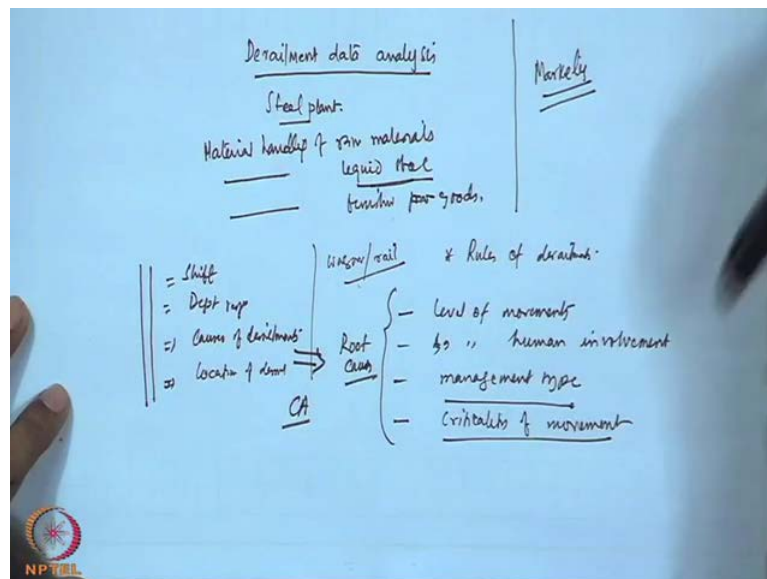 Derailment data analysis
Marketing
Steel plant.
Material handling of raw materials
liquid steel
goods.
= Shift
= Dept
=) Causes of derailments
=) Location of
CA
Wagon/rail
* Rules of derailments.
Root
Causes
- Level of movements
- " human involvement
- management type
- Criticality of movement
NPTEL